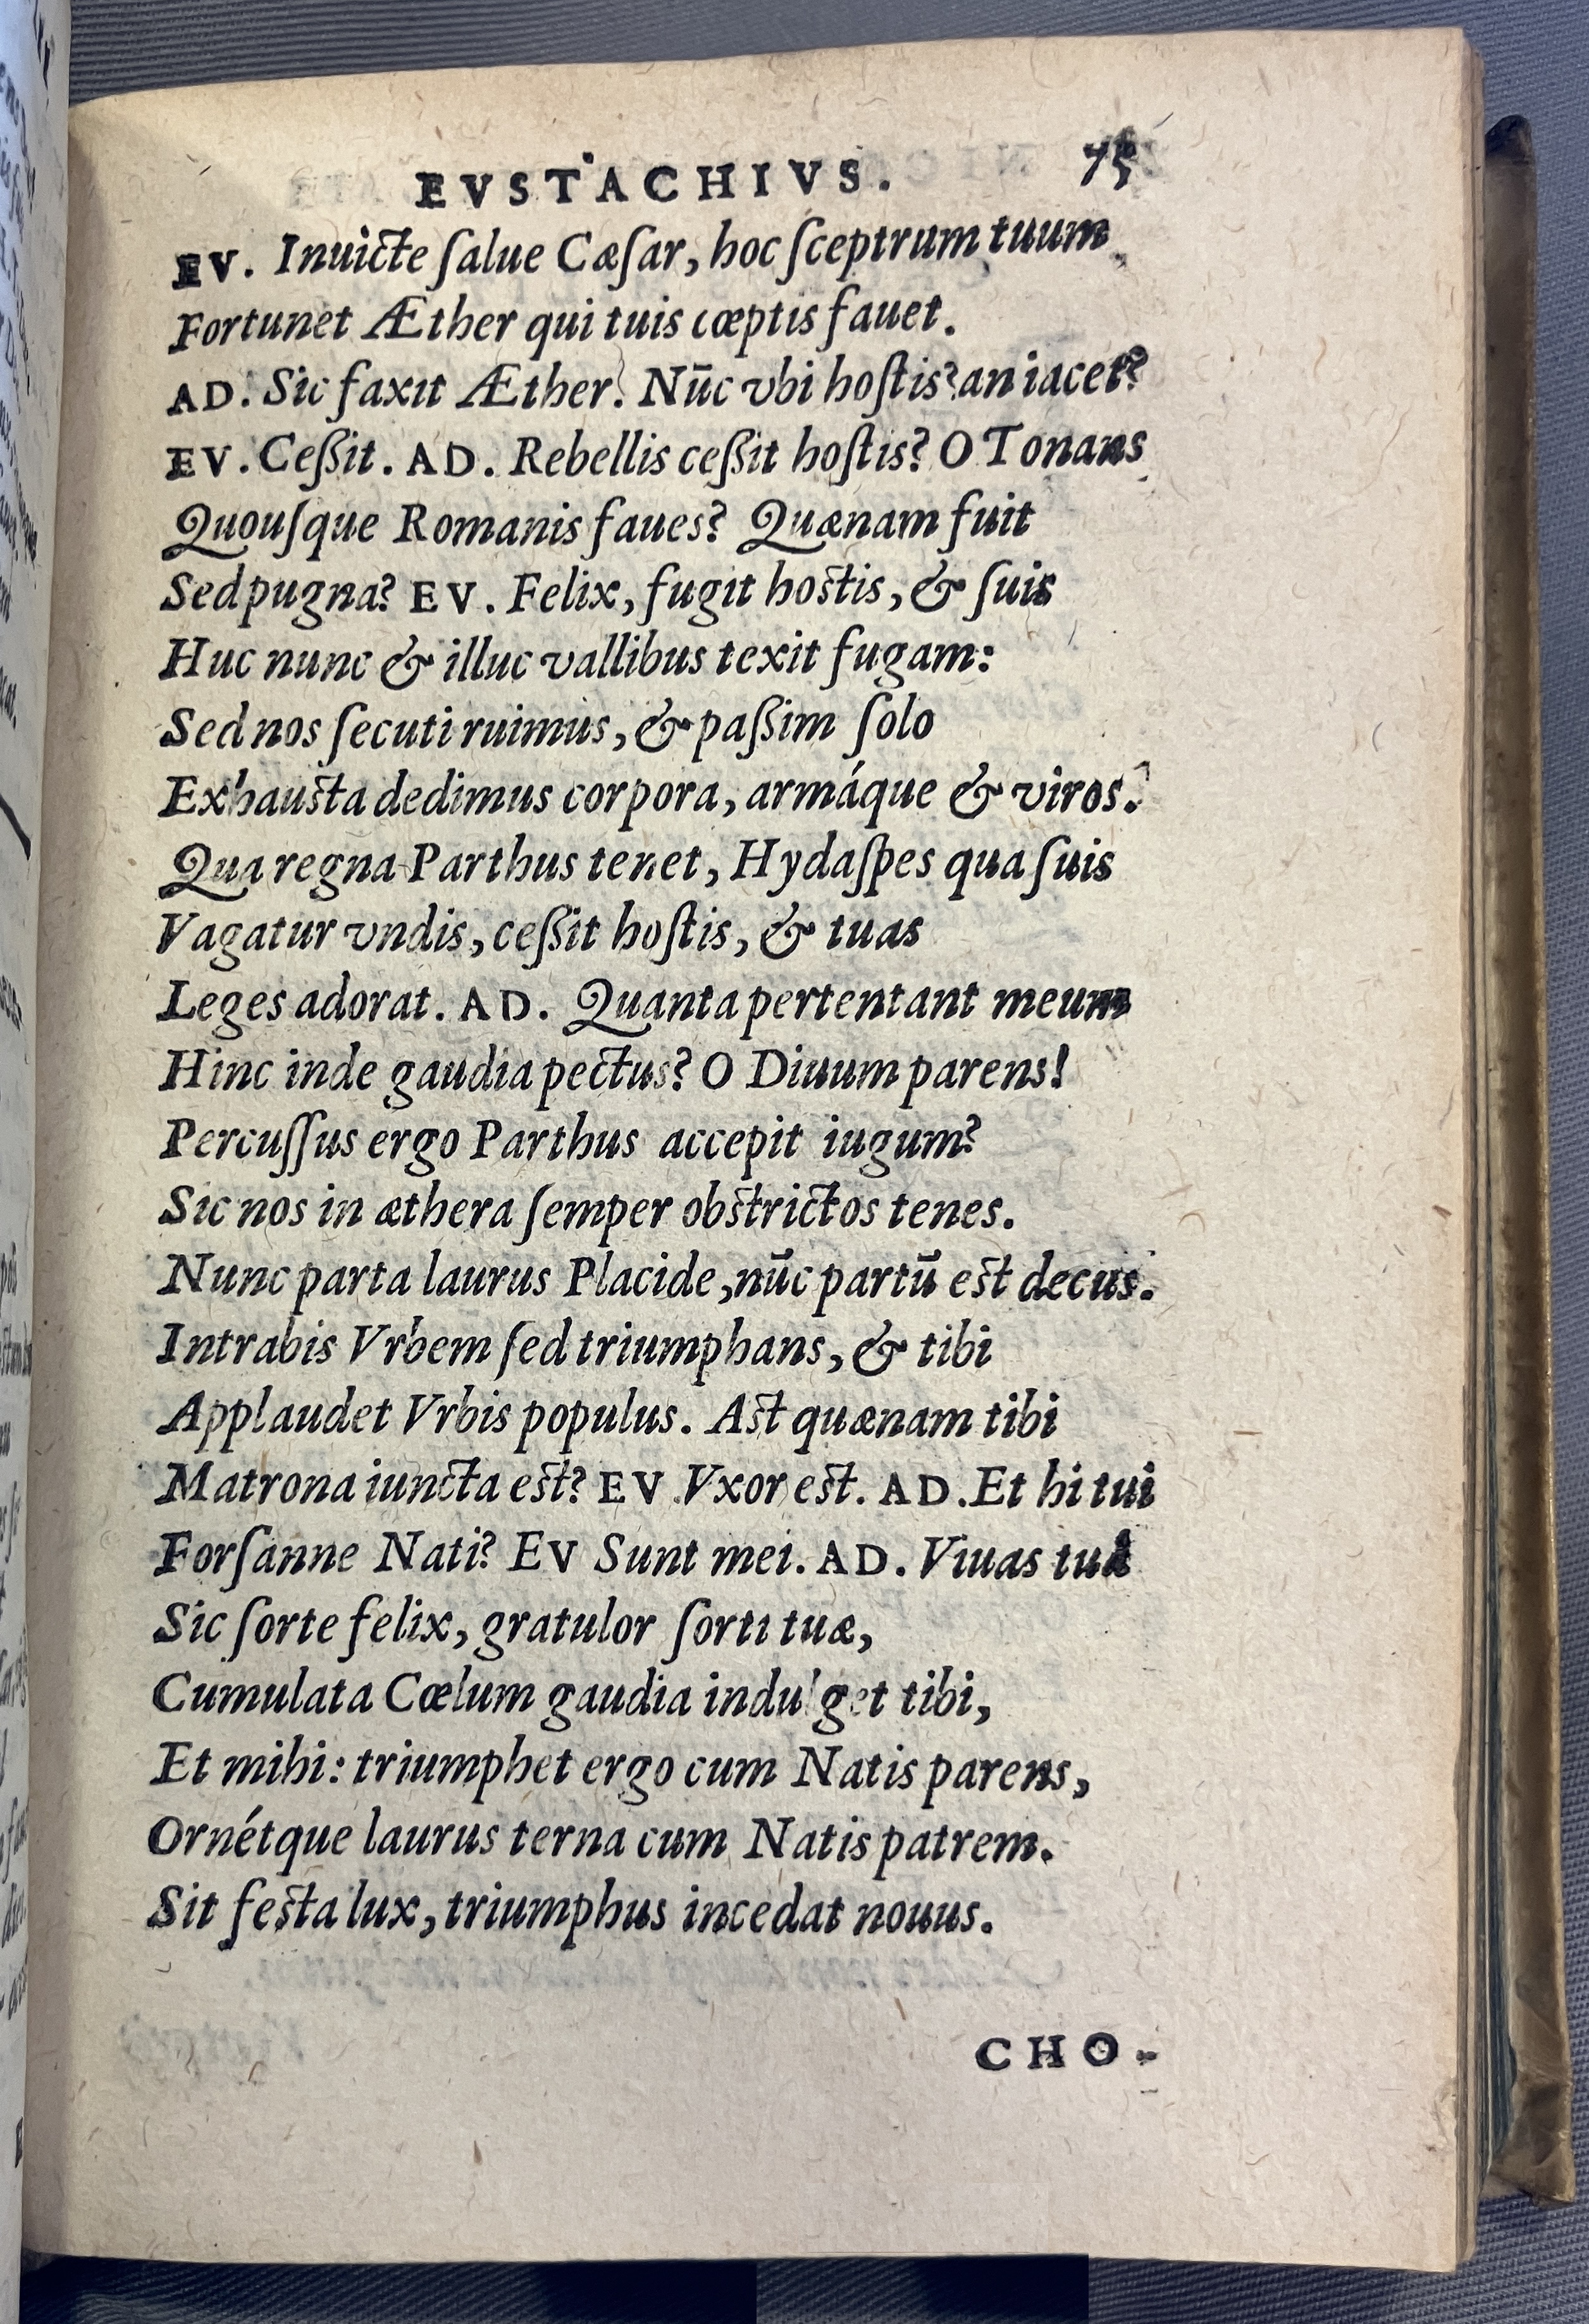 EVSTACHIVS. 75
EV. Inuicte ſalue Cæſar, hoc ſceptrum tuum
Fortunet Æther qui tuis cœptis fauet.
AD. Sic faxit Æther. Nūc vbi hoſtis? an iacet?
EV. Ceßit. AD. Rebellis ceßit hoſtis? O Tonans
Quouſque Romanis faues? Quænam fuit
Sed pugna? EV. Felix, fugit hoſtis, & ſuis
Huc nunc & illuc vallibus texit fugam:
Sed nos ſecuti ruimus, & paßim ſolo
Exhauſta dedimus corpora, armáque & viros.
Qua regna Parthus tenet, Hydaſpes qua ſuis
Vagatur vndis, ceßit hoſtis, & tuas
Leges adorat. AD. Quanta pertentant meum
Hinc inde gaudia pectus? O Diuum parens!
Percuſſus ergo Parthus accepit iugum?
Sic nos in æthera ſemper obſtrictos tenes.
Nunc parta laurus Placide, nūc partū eſt decus.
Intrabis Vrbem ſed triumphans, & tibi
Applaudet Vrbis populus. Aſt quænam tibi
Matrona iuncta eſt? EV. Vxor eſt. AD. Et hi tui
Forſanne Nati? EV Sunt mei. AD. Viuas tuâ
Sic ſorte felix, gratulor ſorti tuæ,
Cumulata Cœlum gaudia indulget tibi,
Et mihi: triumphet ergo cum Natis parens,
Ornétque laurus terna cum Natis patrem.
Sit feſta lux, triumphus incedat nouus.
CHO-